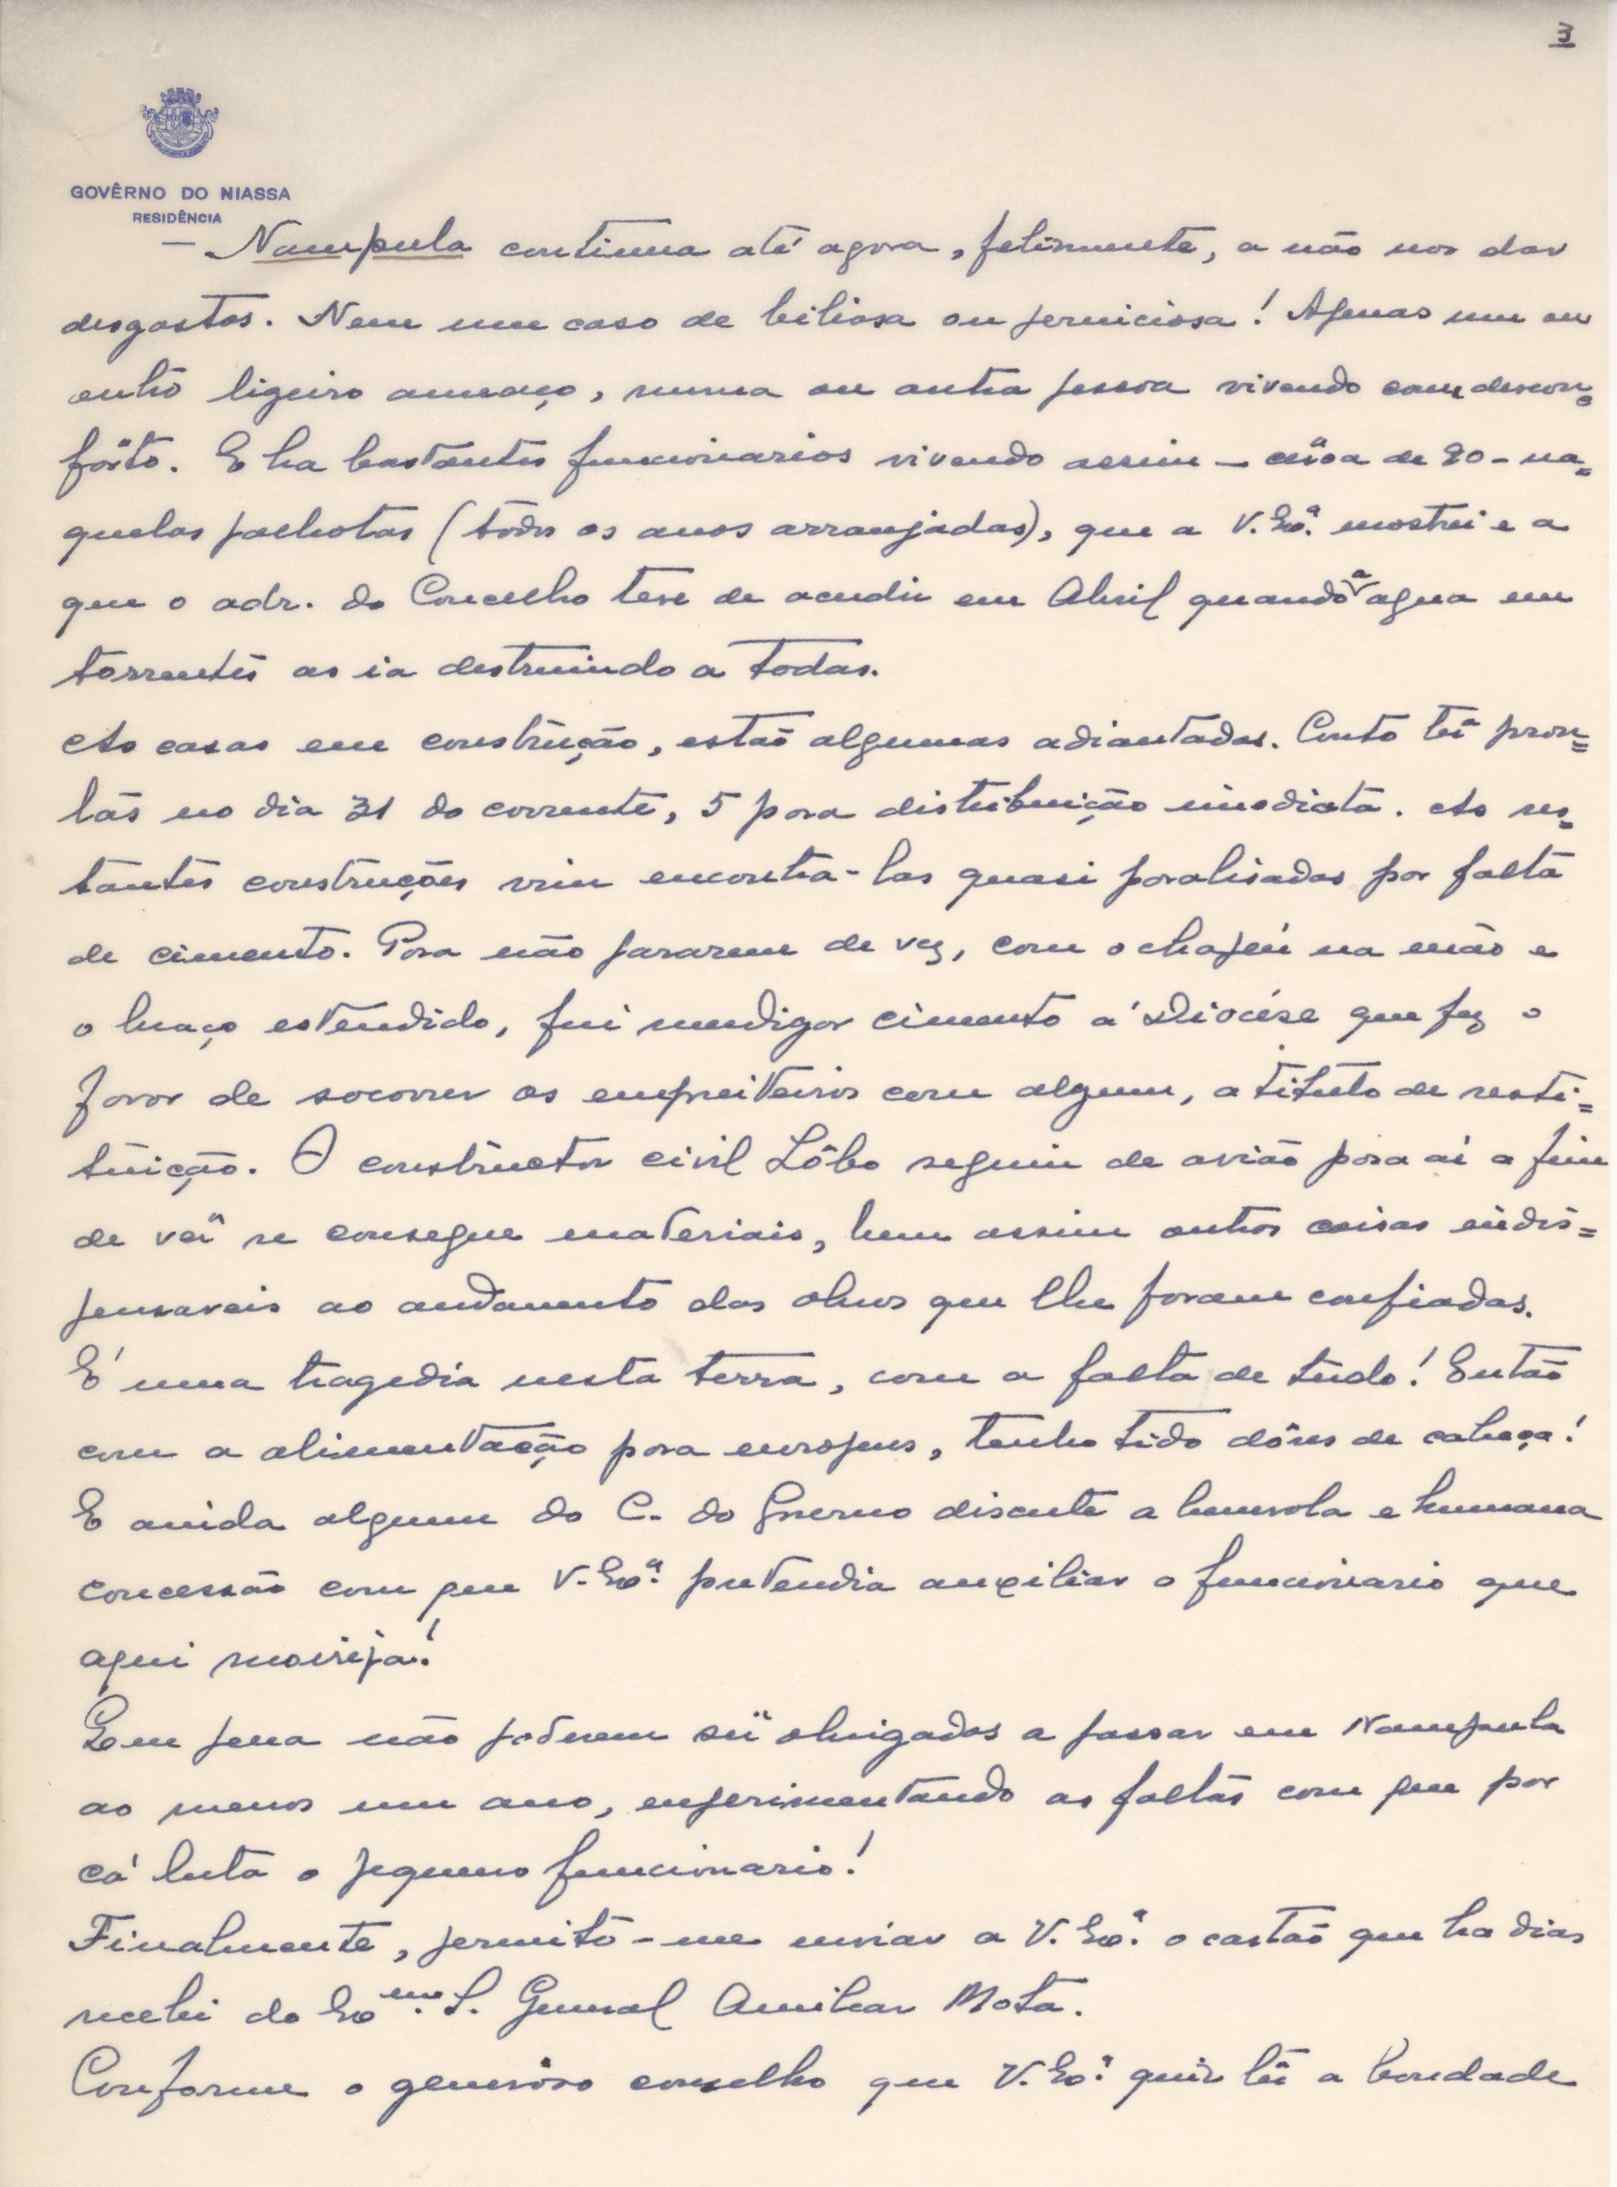 3
GOVÊRNO DO NIASSA
RESIDÊNCIA
— Nampula continua até agora, felizmente, a não nos dar
desgostos. Nem um caso de biliosa ou perniciosa! Apenas um ou
outro ligeiro ameaço, numa ou outra pessoa vivendo com descon=
fôrto. E ha bastantes funcionarios vivendo assim — cêrca de 20 — na=
quelas palhotas (todos os anos arranjadas), que a V. Exª. mostrei e a
que o adr. do Concelho teve de acudir em Abril quando a agua em
torrentes as ia destruindo a todas.
As casas em construção, estão algumas adiantadas. Conto têr pron=
tas no dia 31 do corrente, 5 para distribuição imediata. As res=
tantes construções vim encontra-las quasi paralisadas por falta
de cimento. Para não pararem de vez, com o chapéu na mão e
o braço estendido, fui mendigar cimento á Diocése que fez o
favor de socorrer os empreiteiros com algum, a titulo de resti=
tuição. O constructor civil Lôbo seguiu de avião para aí a fim
de vêr se consegue materiais, bem assim outras coisas indis=
pensaveis ao andamento das obras que lhe foram confiadas.
É uma tragedia nesta terra, com a falta de tudo! Então
com a alimentação para europeus, tenho tido dôres de cabeça!
E ainda alguem do C. do Governo discute a benevola e humana
concessão com que V. Exª. pretendia auxiliar o funcionario que
aqui moireja!
Que pena não poderem sêr obrigados a passar em Nampula
ao menos um ano, experimentando as faltas com que por
cá luta o pequeno funcionario!
Finalmente, permito-me enviar a V. Exª. o cartão que ha dias
recebi do Exmo. S. General Amilcar Mota.
Conforme o generoso conselho que V. Exª. quiz têr a bondade